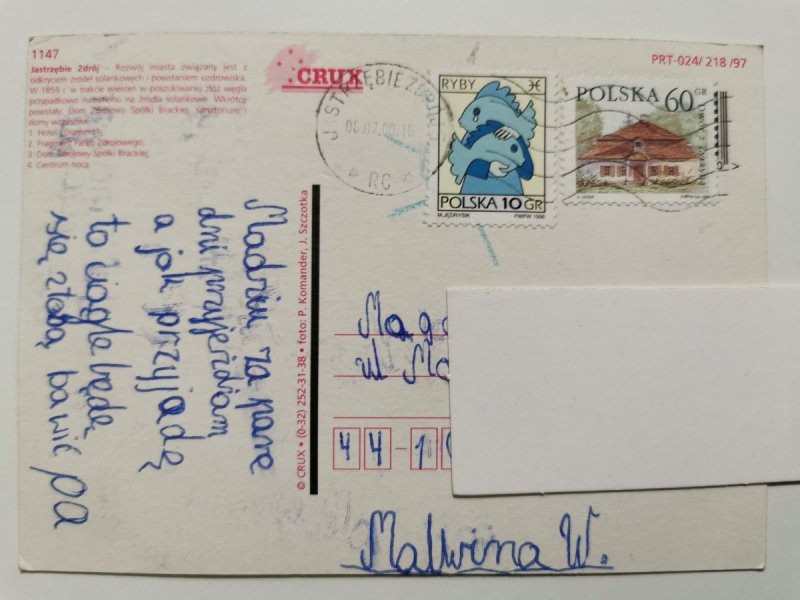 1147
Jastrzębie Zdrój - Rozwój miasta związany jest z
odkryciem źródeł solankowych i powstaniem uzdrowiska.
W 1859 r. w trakcie wierceń w poszukiwaniu złóż węgla
przypadkowo natrafiono na źródła solankowe. Wkrótce
powstały Dom Zdrojowy Spółki Brackiej, sanatorium i
domy wczasowe.
1. Hotel "Diament";
2. Fragment Parku Zdrojowego;
3. Dom Zdrojowy Spółki Brackiej;
4. Centrum nocą
CRUX
PRT-024/ 218 /97
JASTRZĘBIE ZDRÓJ
RC
RYBY
POLSKA 10 GR
M.JĘDRYSIK PWPW 1996
POLSKA 60 GR
Madziu za parę
dni przyjeżdżam
a jak przyjadę
to ciągle będę
się z tobą bawić pa
© CRUX • (0-32) 252-31-38 • foto: P. Komander, J. Szczotka
Mag
ul. Ma
44-1
Malwina W.